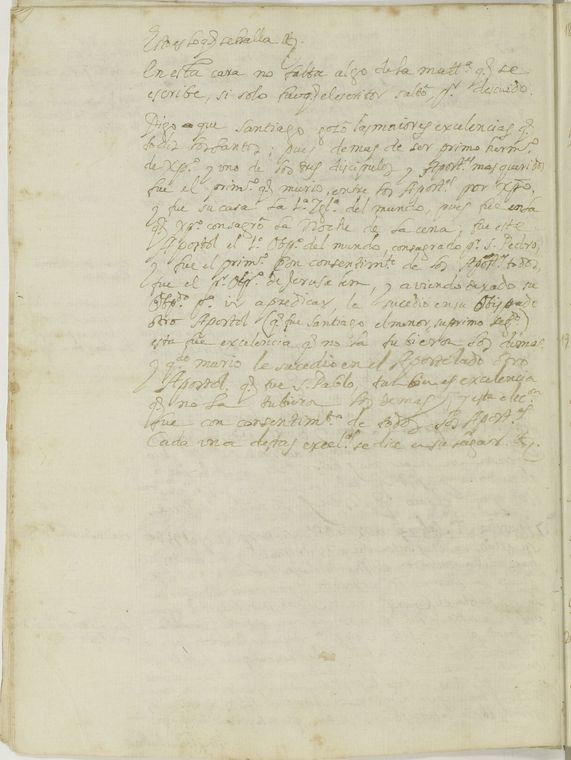 Esto es lo q̃ se halla &.
En esta cara no falta algo de la matt.ª q̃ se
escribe, si solo q̃ el escritor saltó p.r descuido.
Digo que Santiago gozó las maiores excelencias q̃
todos los santos; pues demas de ser primo herm.º
de Xp.º y uno de los tres discipulos y Apost.s mas queridos
fue el prim.º q̃ murio, entre los Apost.s por Xpto,
y fue su casa la 1.ª Igl.ª del mundo, pues fue en la
q̃ Xp.º consagró la noche de la cena; fue este
Apostol el 1.º Obp.º del mundo, consagrado p.r S. Pedro,
y fue el prim.º con consentimt.º de los Apost.s todos,
fue el pr. Obp.º de Jerusalem, y aviendo dexado su
Obp.do p.r ir a predicar, le sucedio en su Obispado
otro Apostol (q̃ fue Santiago, el menor, su primo seg.º)
esta fue excelencia q̃ no la tubieron los demas,
y q.do murio le sucedio en el Apostolado otro
Apostol q̃ fue S. Pablo, tambien es excelencia
q̃ no la tubieron los demas y esta elec.on
fue con consentimt.º de todos los Apost.s
Cada una destas excel.s se dice en su lugar. &.